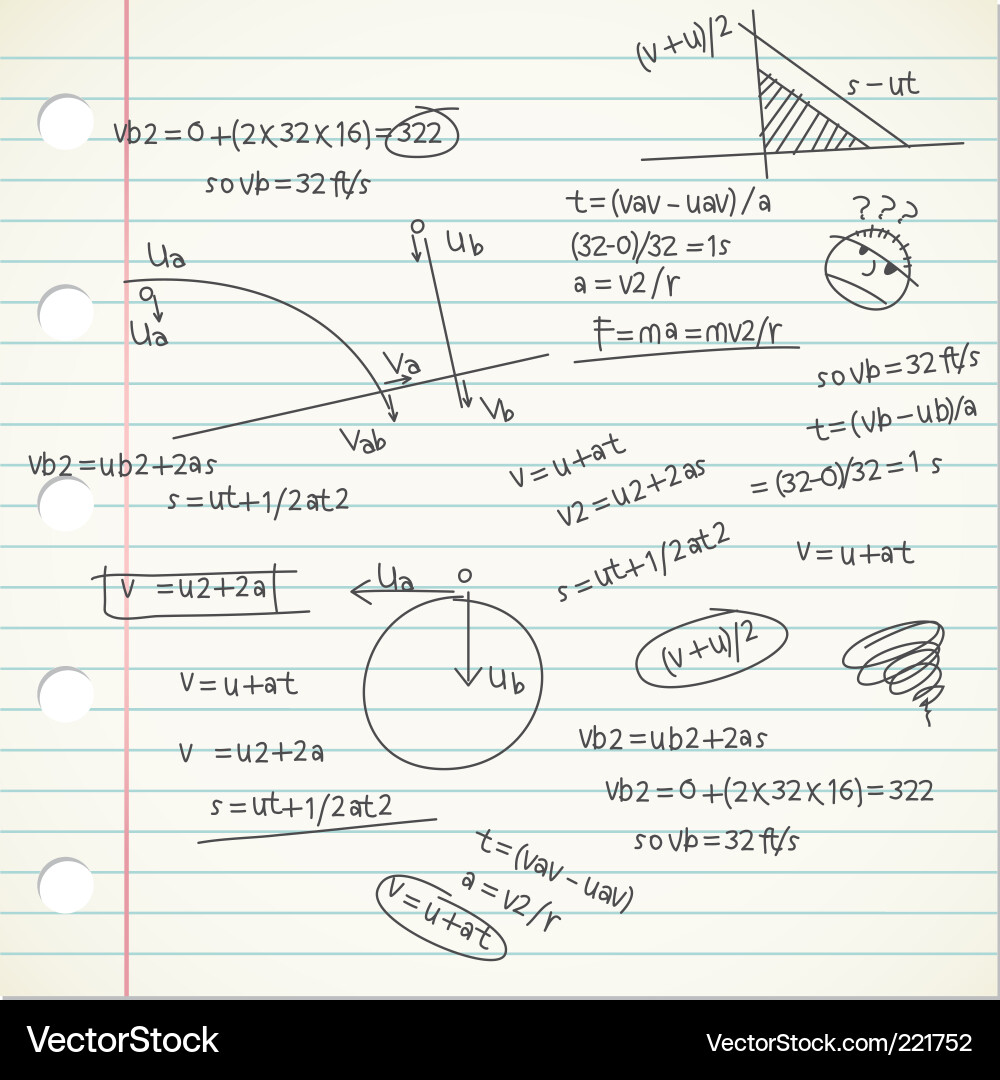 (v+u)/2
s-ut
vb2=0+(2X32X16)=322
so vb=32 ft/s
t=(vav-uav)/a
???
(32-0)/32=1s
a=v2/r
F=ma=mv2/r
Ua
Ub
Ua
Va
Vb
Vab
so vb=32 ft/s
t=(vb-ub)/a
=(32-0)/32=1 s
vb2=ub2+2as
s=ut+1/2at2
v=u+at
v2=u2+2as
s=ut+1/2at2
v=u+at
v =u2+2a
Ua
Ub
(v+u)/2
v=u+at
v =u2+2a
s=ut+1/2at2
vb2=ub2+2as
vb2=0+(2X32X16)=322
so vb=32 ft/s
t=(vav-uav)
a=v2/r
v=u+at
VectorStock
VectorStock.com/221752